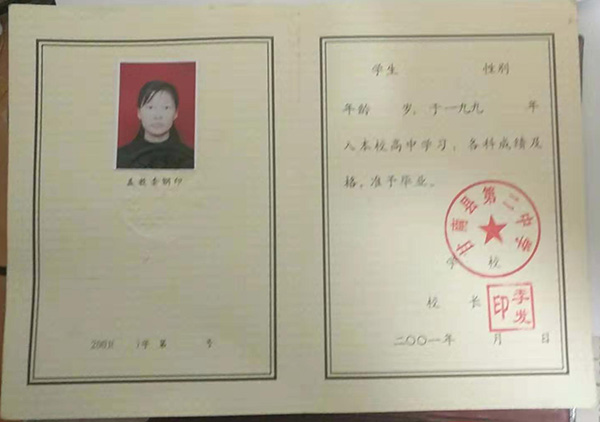 盖教委钢印
2001 字第 号
学生 性别
年龄 岁，于一九九 年
入本校高中学习，各科成绩及
格，准予毕业。
甘南县第二中学
学 校
校 长
李发印
二〇〇一年 月 日